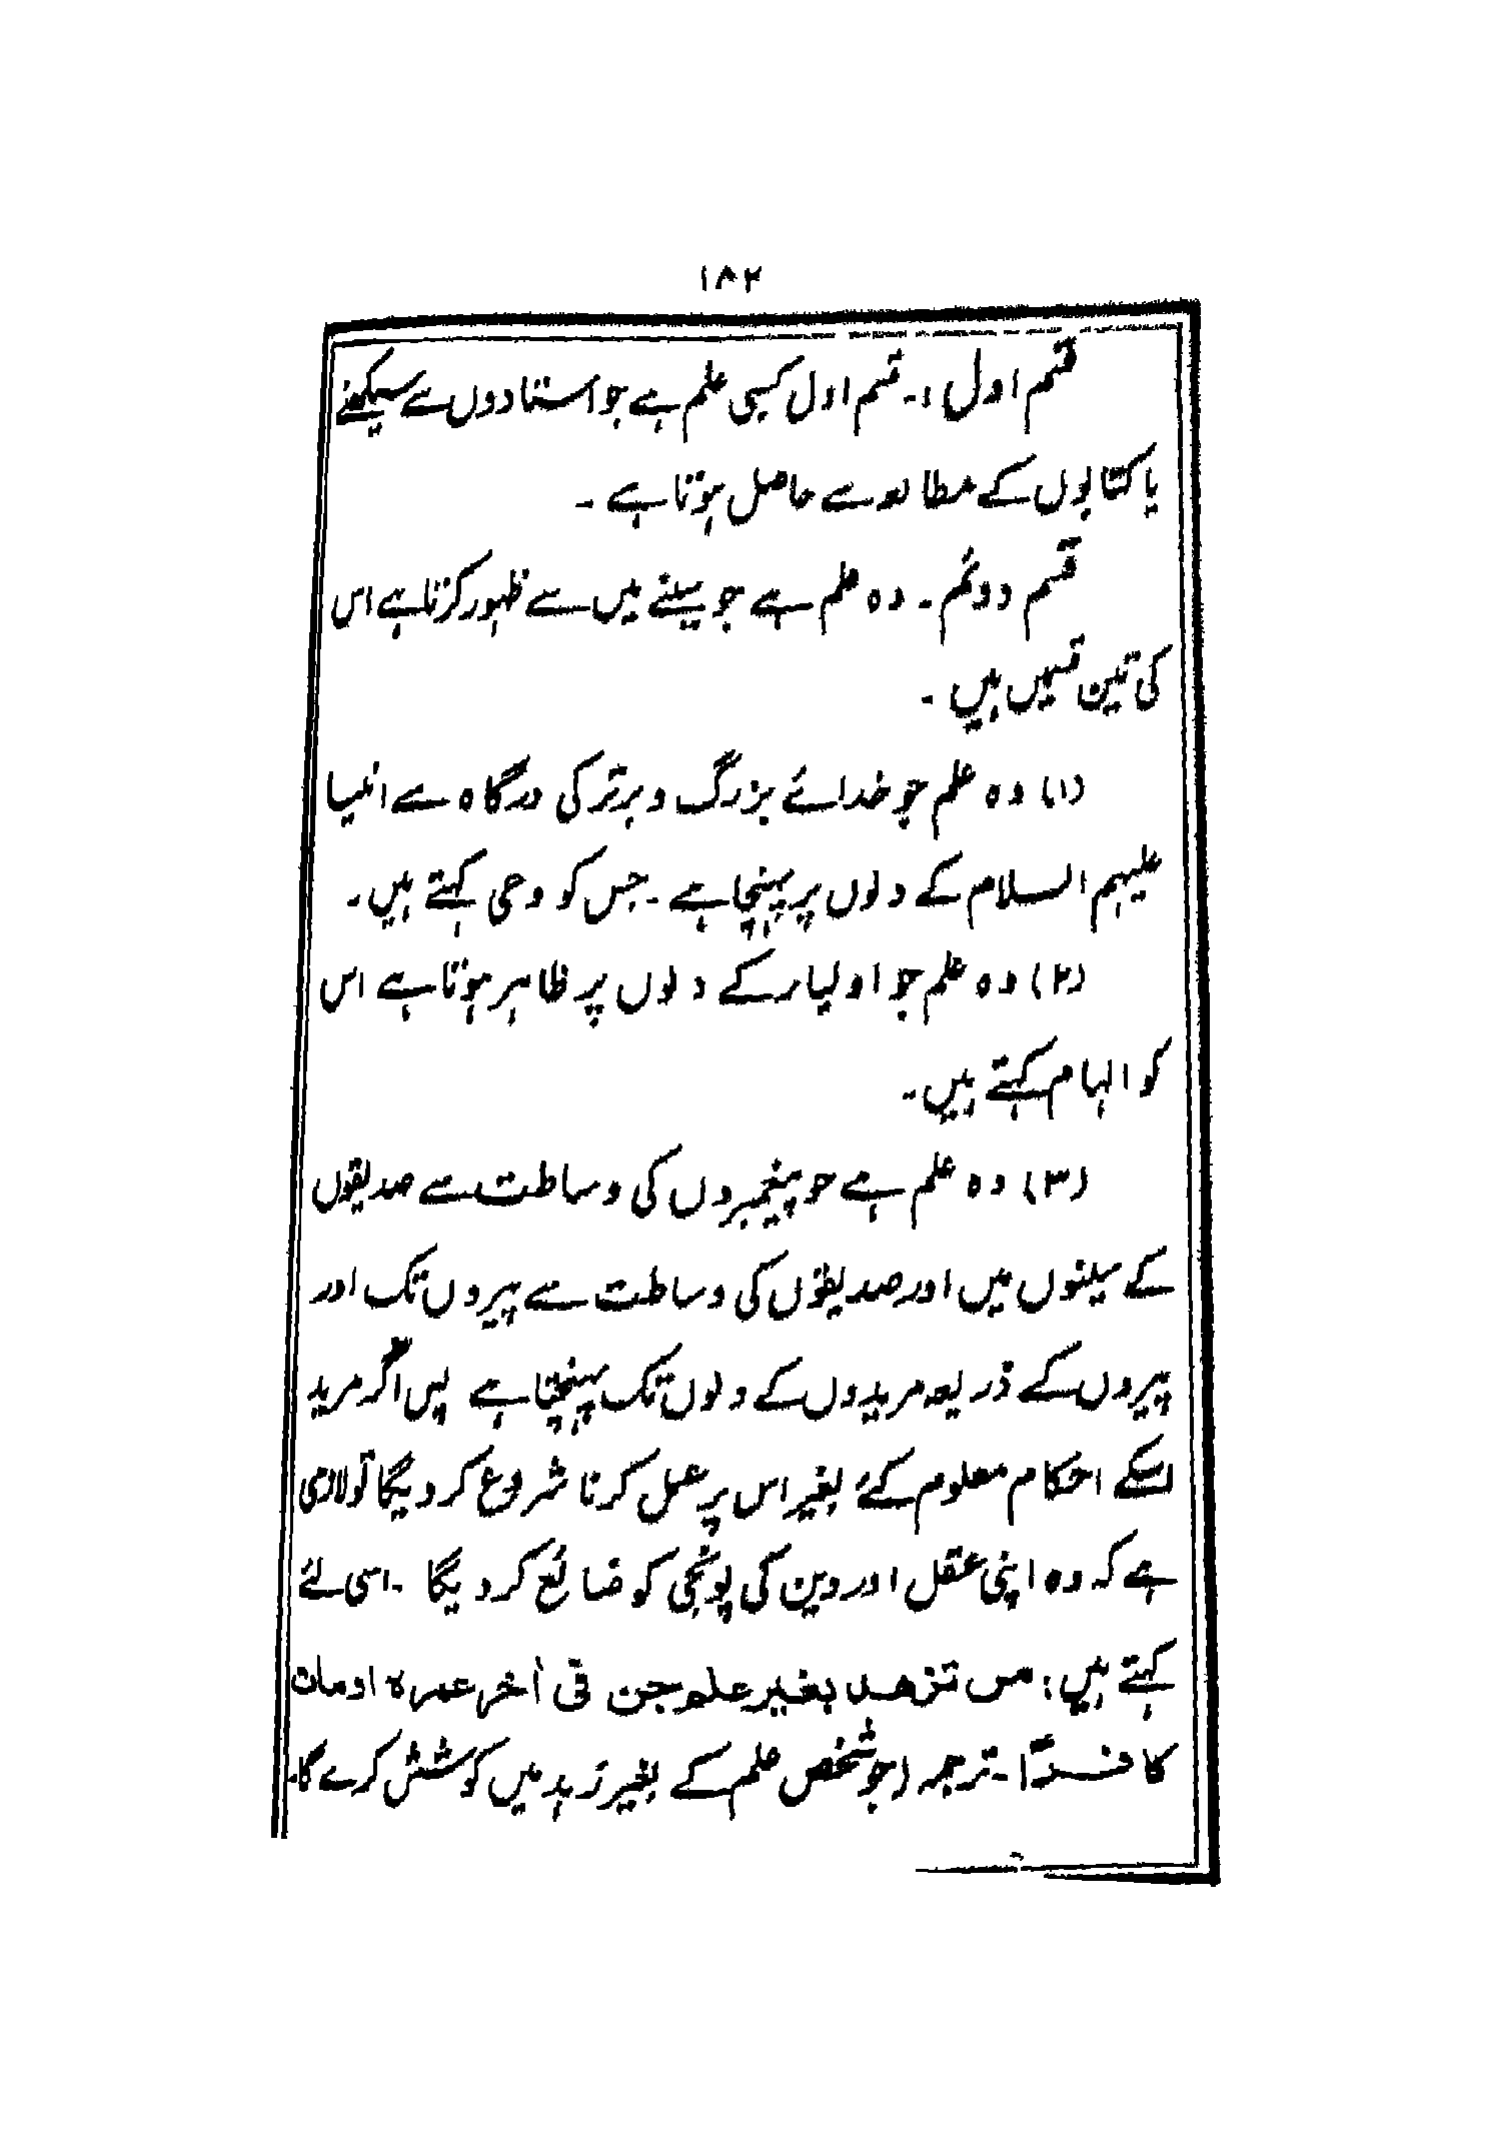 ۱۸۲
قسم اول :۔ قسم اول کسبی علم ہے جو استادوں سے سیکھنے
یا کتابوں کے مطالعہ سے حاصل ہوتا ہے ۔
قسم دوئم ۔ وہ علم ہے جو سینے میں سے ظہور کرتا ہے اس
کی تین قسمیں ہیں ۔
(۱) وہ علم جو خدائے بزرگ و برتر کی درگاہ سے انبیا
علیہم السلام کے دلوں پر پہنچا ہے ۔ جس کو وحی کہتے ہیں ۔
(۲) وہ علم جو اولیاء کے دلوں پر ظاہر ہوتا ہے اس
کو الہام کہتے ہیں ۔
(۳) وہ علم ہے جو پیغمبروں کی وساطت سے صدیقوں
کے سینوں میں اور صدیقوں کی وساطت سے پیروں تک اور
پیروں کے ذریعہ مریدوں کے دلوں تک پہنچتا ہے پس اگر مرید
اسکے احکام معلوم کئے بغیر اس پر عمل کرنا شروع کر دیگا تو لازمی
ہے کہ وہ اپنی عقل اور دین کی پونجی کو ضائع کر دیگا ۔ اسی لئے
کہتے ہیں : من تزھد بغیر علم جن فی أخر عمرہ اومات
کافراً ۔ ترجمہ (جو شخص علم کے بغیر زہد میں کوشش کرے گا۔